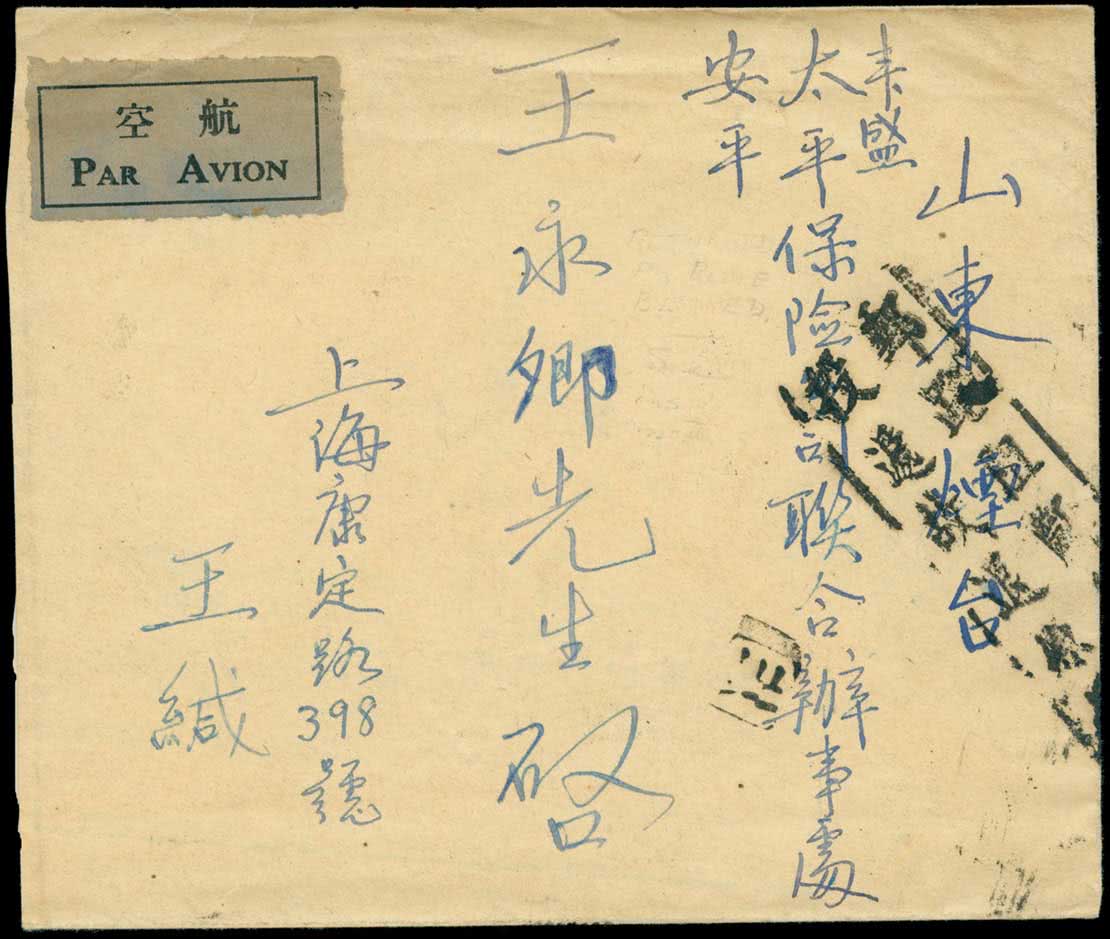 航空
PAR AVION
山東煙台
丰盛
太平保險司聯合辦事處
安平
王永卿先生啓
上海康定路398號
王緘
郵路阻斷